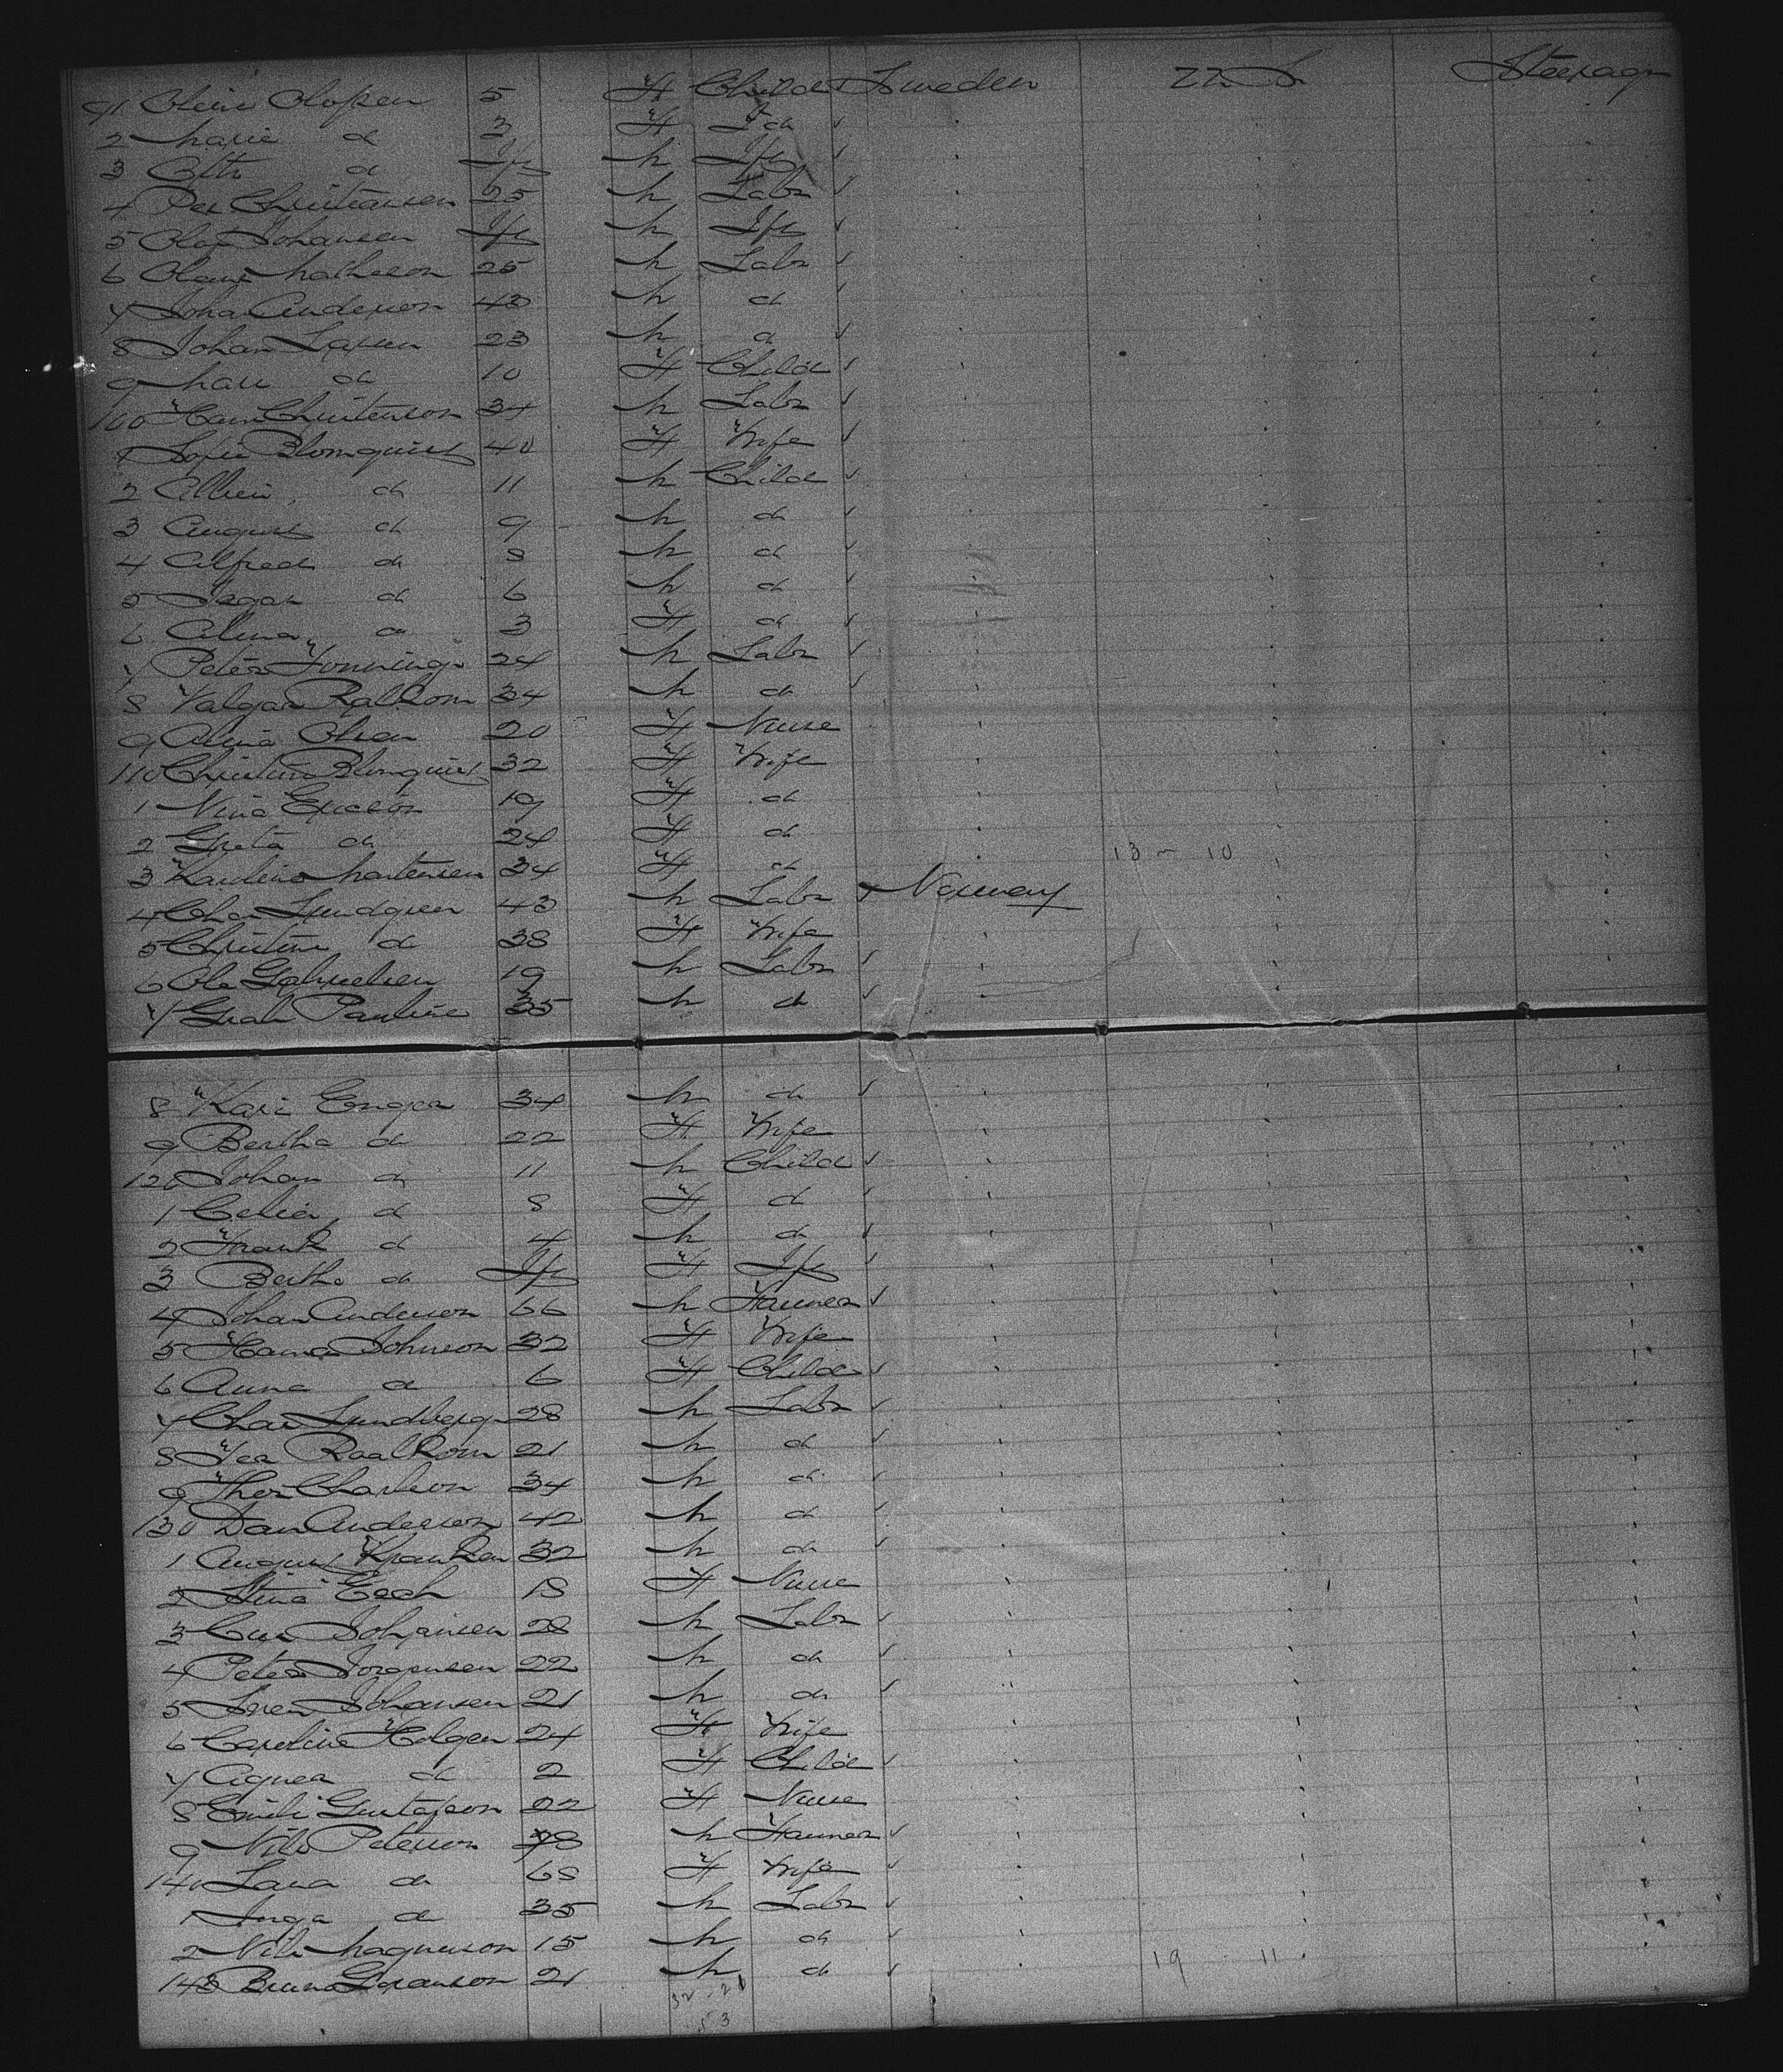 91 Oleine Olofsen 5 F Child Sweden U.S. Steerage
2 Marie do 3 F do
3 Otto do Inf M Inf
4 Per Christiansen 25 M Labr
5 Olaf Johansen Inf M Inf
6 Mathieson 25 M Labr
7 Joha Anderson 43 M do
8 Johan Larsen 23 M do
9 Mari do 10 F Child
100 Hans Christenson 34 M Labr
1 Sofie Blomquist 40 F Wife
2 do 11 M Child
3 August do 9 M do
4 Alfred do 8 M do
5 do 6 M do
6 Alma do 3 F do
7 Peter 24 M Labr
8 34 M do
9 Alma Olsen 20 F Nurse
110 Christina Blomquist 32 F Wife
1 Nina Ericson 19 F do
2 Greta do 24 F do
13 - 10
3 Karolina Martensen 34 F do
4 Chas Lundgren 43 M Labr Norway
5 Christine do 38 F Wife
6 Ole Gabrielsen 19 M Labr
7 Pauline 35 M do
8 Kari Enger 34 M do
9 Bertha do 22 F Wife
120 Johan do 11 M Child
1 Celia do 8 F do
2 Frank do 4 M do
3 Bertha do Inf F Inf
4 Johan Anderson 66 M Farmer
5 Hanna Johnson 32 F Wife
6 Anna do 6 F Child
7 Chas Lundberg 28 M Labr
8 21 M do
9 Thor Charlson 34 M do
130 Dan Anderson 42 M do
1 August 32 M do
2 Stina 18 F Nurse
3 Johansen 28 M Labr
4 Peter Jorgensen 22 M do
5 Johansen 21 M do
6 Caroline Holgen 24 F Wife
7 Agnes do 2 F Child
8 Emili Gustafson 22 F Nurse
9 Nils Peterson 78 M Farmer
140 Lana do 68 F Wife
1 Inga do 35 M Labr
2 Nils Magnuson 15 M do
19 11
143 Bruno 21 M do
32 21
53